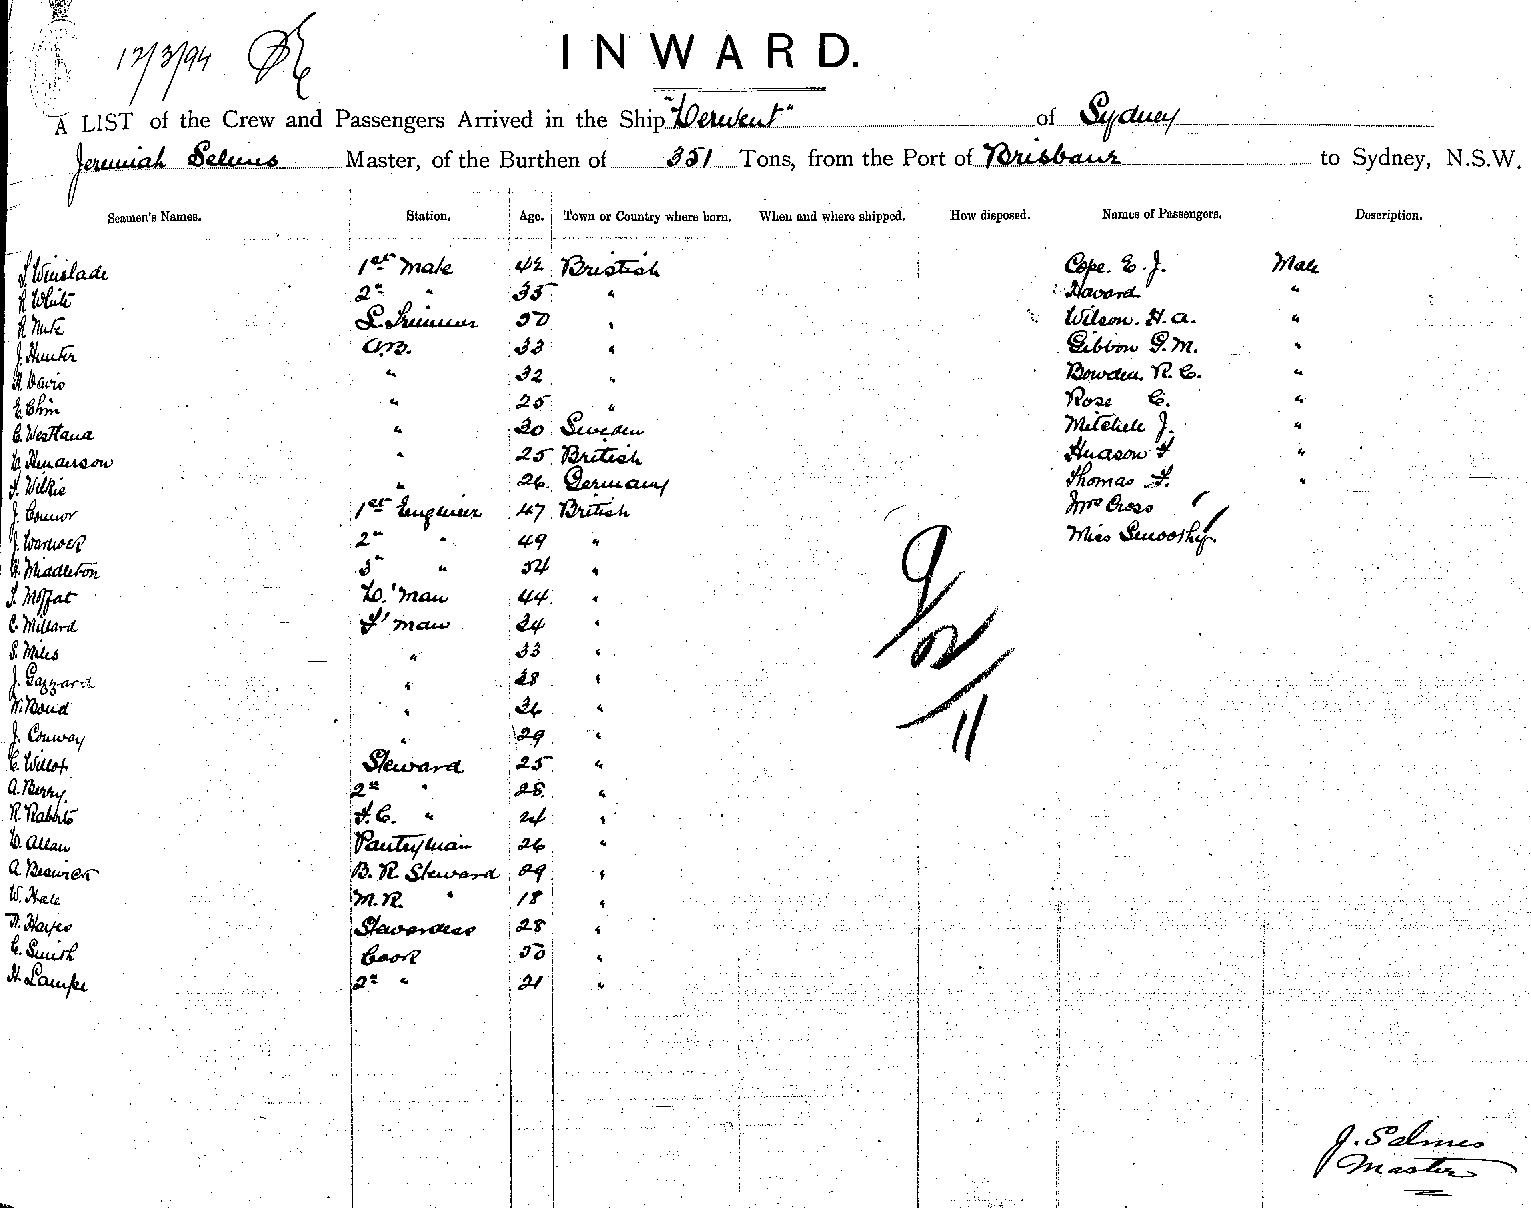 12/3/94
INWARD.
A LIST of the Crew and Passengers Arrived in the Ship "Derwent" of Sydney
Jeremiah Selmes Master, of the Burthen of 351 Tons, from the Port of Brisbane to Sydney, N.S.W.
Seamen's Names. Station. Age. Town or Country where born. When and where shipped. How disposed. Names of Passengers. Description.
S. Winslade 1st Mate 42 Bristish Cope. E. J. Male
R White 2nd " 35 " Havard "
R 30 " Wilson. H. A. "
J. Hunter A.B. 33 " Gibbon G. M. "
H. Davis " 32 " Bowden. R. C. "
E. Chin " 25 " Rose C. "
C. Westlana " 30 Sweden Mitchell J. "
D. Henderson " 25 British Hudson F "
F. Wilkie " 26 Germany Thomas F. "
J. Connor 1st Engineer 47 British Mrs Cross
J. Warwick 2nd " 49 " Miss Smoothy
H. Middleton 3rd " 34 "
T. Moffat D'man 44 "
C. Millard F'man 24 "
S. Miles " 33 "
J. Gazzard " 38 "
W. Bond " 36 "
J. Conway " 29 "
C. Willox Steward 25 "
A. Berry 2nd " 28 "
R. Roberts F.C. " 24 "
D. Allan Pantryman 26 "
A. Beswick B. R. Steward 29 "
W. Hale M.R. " 18 "
Hayes Stewardess 28 "
C. Smith Cook 30 "
H. Lampe 2nd " 21 "
9/2/11
J. Selmes
Master